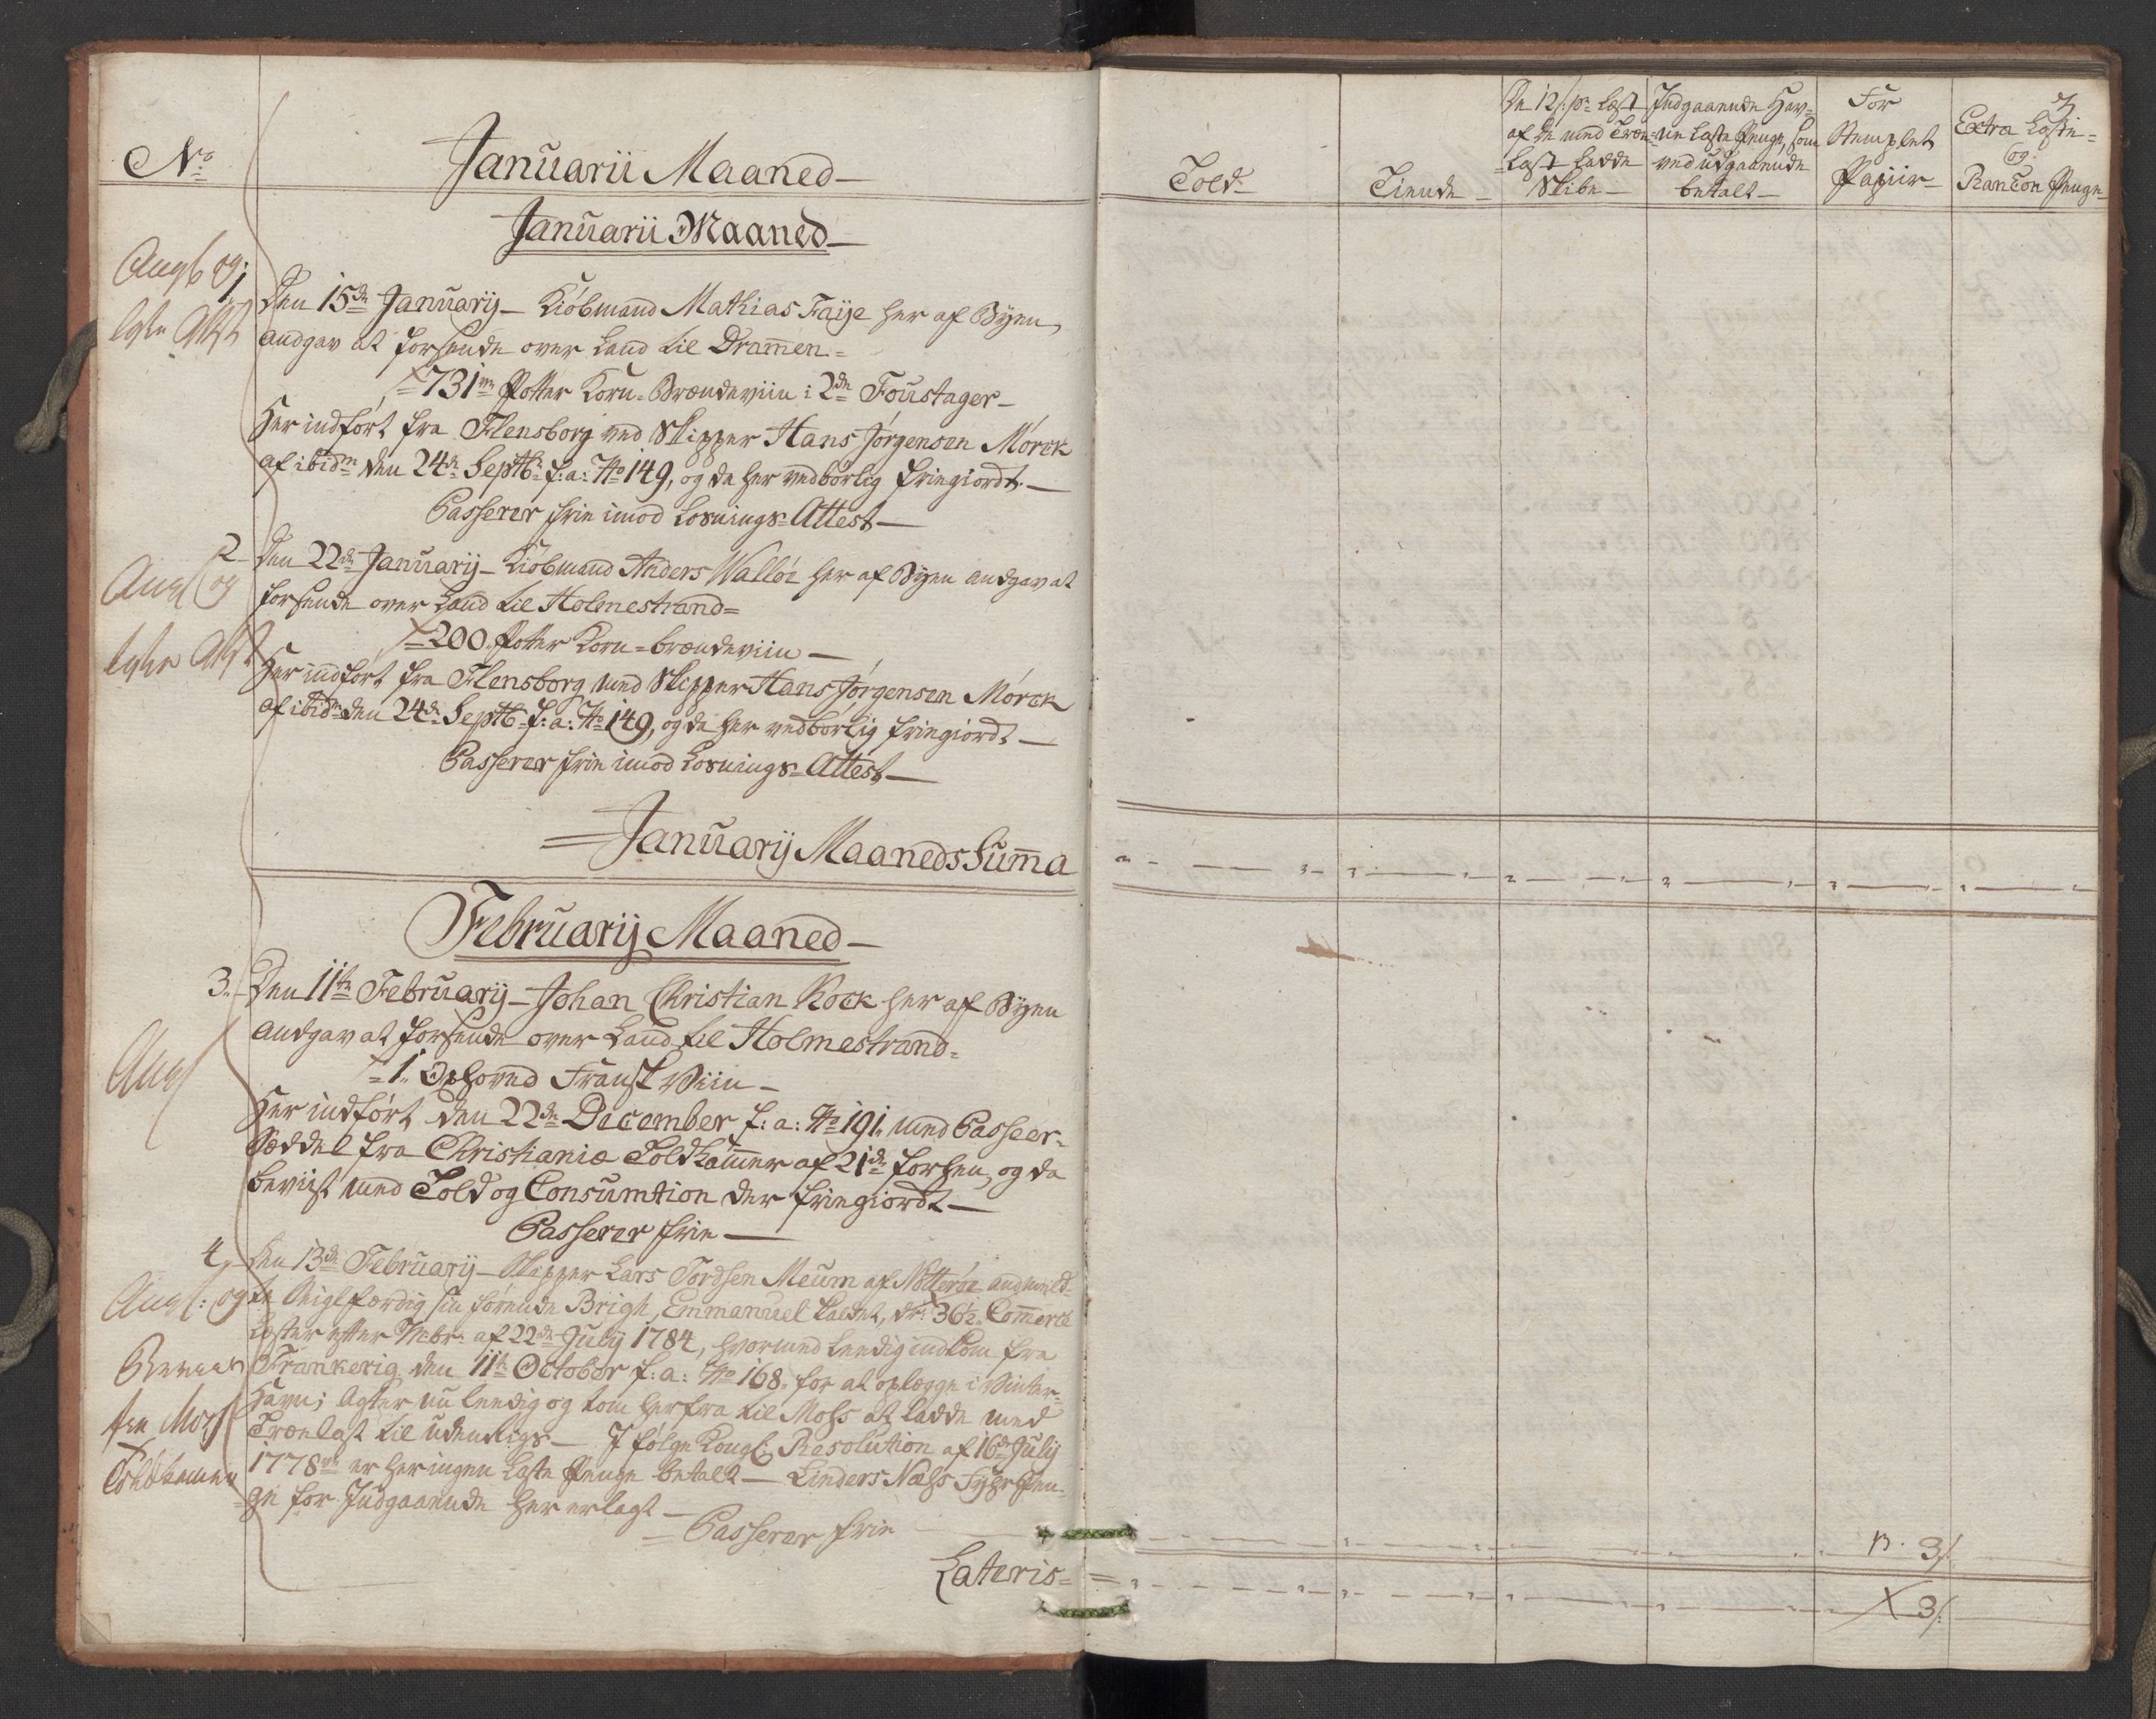 No
Januarii Maaned
Januarii Maaned
1
Den 15de Januarij - Kiöbmand Mathias Faije her af Byen,
andgav at forsende over Land til Drammen =
= 731 1/2 Potter Korn-Brændeviin i 2de Foustager -
Her indfört fra Flensborg med Skipper Hans Jörgensen Mörck
af ibidm den 24de Septbr f: a: No 149, og da her vedbörlig friegiordt. -
Passerer frie imod Losnings-Attest -
2
Den 22de Januarij - Kiöbmand Anders Wallöe her af Byen andgav at
forsende over Land til Holmestrand =
= 200 Potter Korn-brændeviin -
Her indfört fra Flensborg med Skipper Hans Jörgensen Mörck
af ibidm den 24de Septb f: a: No 149, og da her vedbörlig friegiordt -
Passerer frie imod Losnings-Attest -
= Januarij Maaneds Summa
Februarij Maaned -
3.
Den 11te Februarij - Johan Christian Kock her af Byen
andgav at forsende over Land til Holmestrand =
= 1 Oxhoved Fransk Viin -
Her indfört den 22de December f: a: No 191 med Passeer-
Seddel fra Christiania Toldkammer af 21de forhen, og da
beviist med Told og Consumtion der friegiordt -
Passerer frie -
4
Den 13de Februarij - Skipper Lars Tordsen Meum af Nötteröe andmeld-
te Seiglfærdig sin förende Brigh, Emmanuel kaldet, dr: 36 1/2 Commerce
Læster efter Mbr: af 22de Julij 1784, hvormed leedig indkom fra
Frankerig den 11te October f: a: No 168 for at oplægge i Vinter-
Havn; Agter nu leedig og tom herfra til Moss at ladde med
Trælast til udenrigs - I fölge Kongl: Resolution af 16de Julij
1778 er her ingen Læste Penge betalt - Linders Næss Fyhr Pen-
ge for Indgaaende her erlagt -
= Passerer frie
Lateris =
Told
Tiende
De 12 s: pr Læst
af de med Træe-
Læst ladde
Skibe -
Indgaaende Hav-
ne Læste Penge, som
ved udgaaende
betalt -
For
Stemplet
Papiir -
Extra Læste-
og
Rancon Penge
3
3